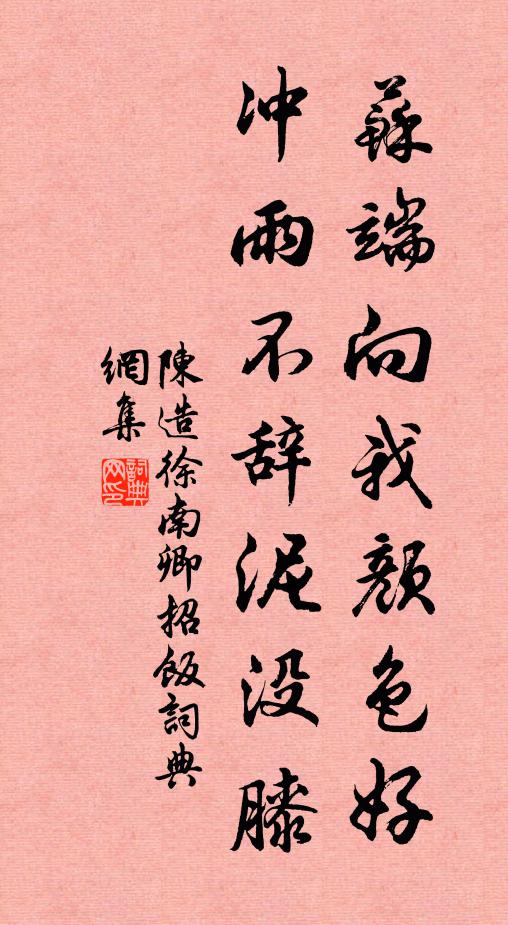 蘇端向我顏色好
冲雨不辞泥没膝
陳造徐南卿招飯詞典
網集
詞典網印